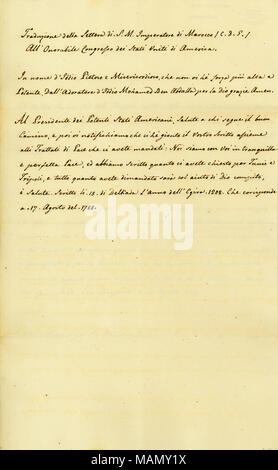 Traduzione della Lettera di S. M. Imperatore di Marocco / C. D. S. /
All' Onorabile Congresso dei Stati Uniti di America.
In nome d'Iddio Pietoso e Misericordioso, che non vi hè forza più alta e
Potente. Dall' Adoratore d'Iddio Mohamed Ben Abdalla per la dio grazie Amen.
Al Presidente dei Potenti Stati Americani, Salute a chi segue il buon
Camino, e poi vi notifichiamo che ci hè gionto il Vostro Scritto assieme
alli Trattati di Pace che ci avete mandati: Noi siamo con Voi in tranquilla
e perfetta Pace, ed abbiamo Scritto quanto ci avete chiesto per Tunis e
Tripoli, e tutto quanto avete dimandato sarà col aiuto di Dio compito,
è Salute. Scritto li. 15. di Delkada L'anno dell' Egira. 1202. Che corisponde
a. 17. Agosto del. 1788.
alamy
Image ID: MAMY1X
www.alamy.com